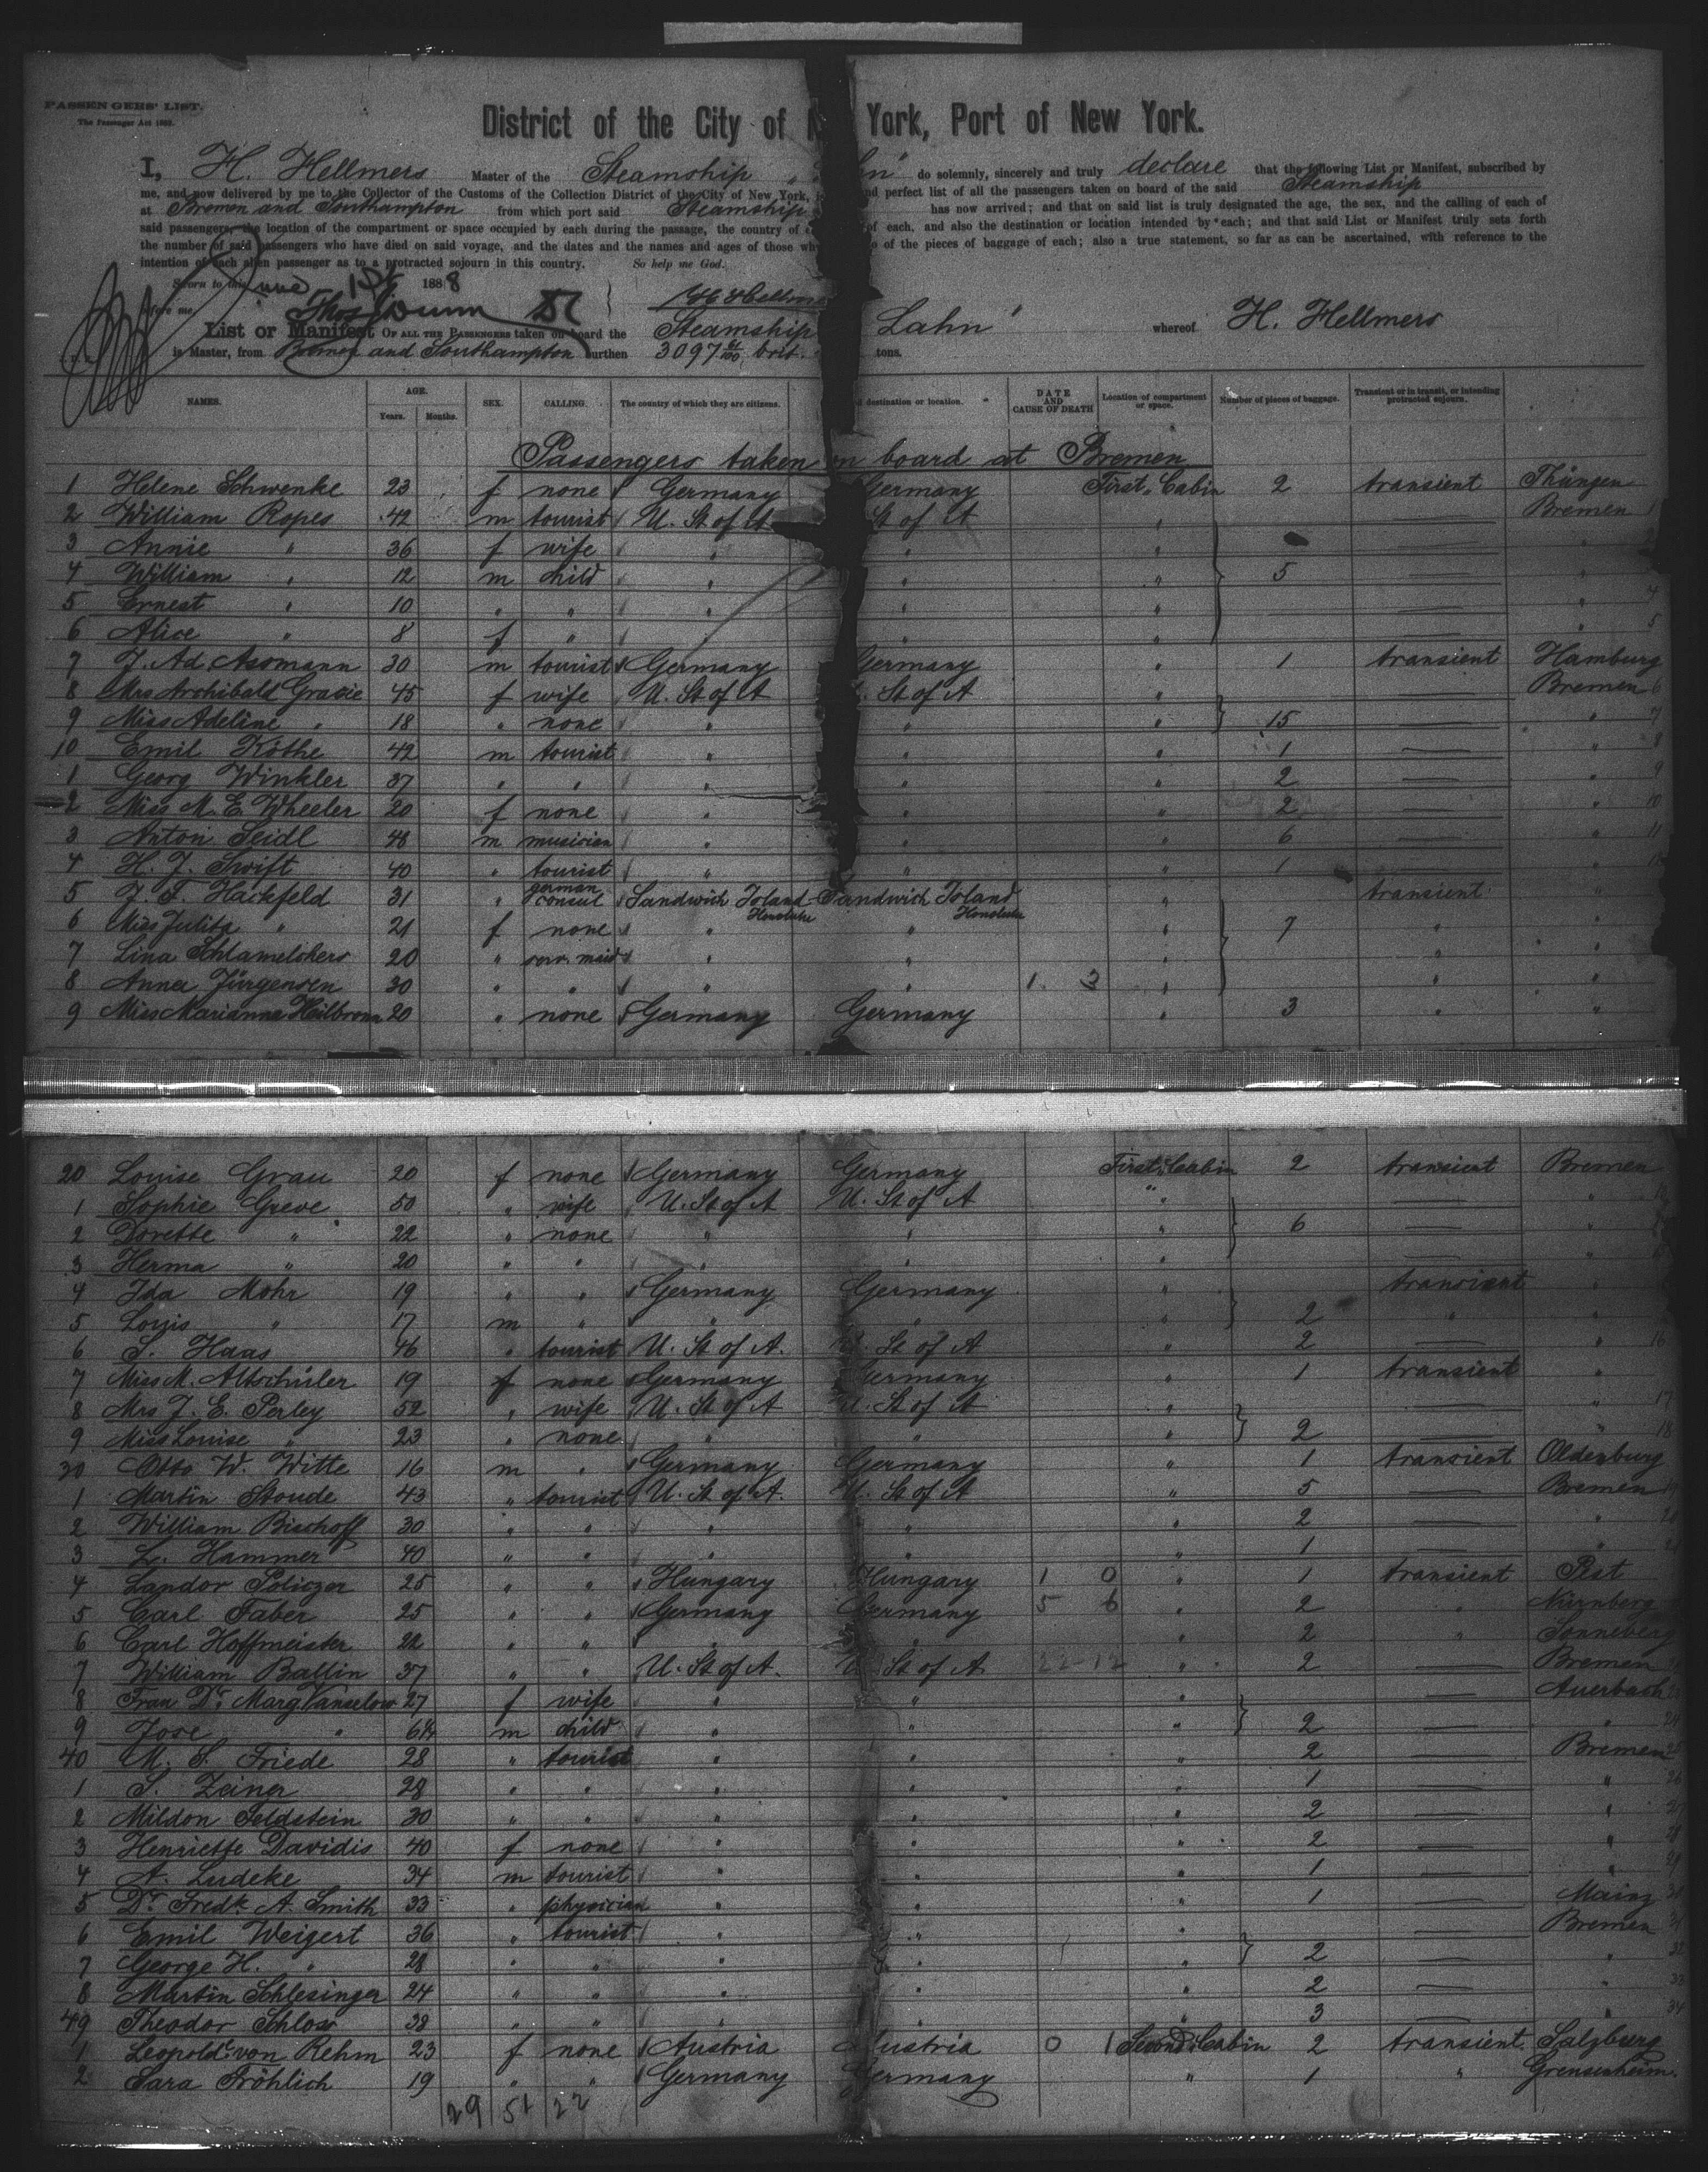 PASSENGERS' LIST.
The Passenger Act 1882.
District of the City of N York, Port of New York.
I, H. Hellmers Master of the Steamship " hn" do solemnly, sincerely and truly declare that the following List or Manifest, subscribed by
me, and now delivered by me to the Collector of the Customs of the Collection District of the City of New York, nd perfect list of all the passengers taken on board of the said Steamship
at Bremen and Southampton from which port said Steamship has now arrived; and that on said list is truly designated the age, the sex, and the calling of each of
said passengers, the location of the compartment or space occupied by each during the passage, the country of of each, and also the destination or location intended by each; and that said List or Manifest truly sets forth
the number of said passengers who have died on said voyage, and the dates and the names and ages of those wh of the pieces of baggage of each; also a true statement, so far as can be ascertained, with reference to the
intention of each alien passenger as to a protracted sojourn in this country. So help me God.
Sworn to this June 1st 1888
before me Thos Dunn H Hellme
List or Manifest OF ALL THE PASSENGERS taken on board the Steamship Lahn" whereof H. Hellmers
is Master, from Bremen and Southampton burthen 3097 61/100 brit. tons.
NAMES. AGE. Years. Months. SEX. CALLING. The country of which they are citizens. d destination or location. DATE AND CAUSE OF DEATH Location of compartment or space. Number of pieces of baggage. Transient or in transit, or intending protracted sojourn.
Passengers taken on board at Bremen
1 Helene Schwenke 23 f none Germany Germany First Cabin 2 transient Thüngen
2 William Ropes 42 m tourist U. St of A St of A " Bremen 1
3 Annie " 36 f wife " " " "
4 William " 12 m child " " " 5 "
5 Ernest " 10 " " " " " " 4
6 Alice " 8 f " " " " " 5
7 J. Ad. Assmann 30 m tourist Germany Germany " 1 transient Hamburg
8 Mrs Archibald Gracie 45 f wife U. St of A St of A " Bremen 6
9 Miss Adeline " 18 " none " " " 15 " 7
10 Emil Köthe 42 m tourist " " " 1 " 8
1 Georg Winkler 37 " " " " " 2 " 9
2 Miss M. E. Wheeler 20 f none " " " 2 " 10
3 Anton Seidl 48 m musician " " " 6 " 11
4 H. J. Swift 40 " tourist " " " 1 " 12
5 J. F. Hackfeld 31 " german consul Sandwich Island Honolulu Sandwich Island Honolulu " transient "
6 Miss Julita " 21 f none " " " 7 " "
7 Lina Schlamelchers 20 " serv. maid " " " " "
8 Anna Jürgensen 30 " " " " 1 3 " " "
9 Miss Marianna Heilbronn 20 " none Germany Germany " 3 " "
20 Louise Grau 20 f none Germany Germany First Cabin 2 transient Bremen
1 Sophie Greve 50 " wife U. St of A U. St of A " "
2 Dorette " 22 " none " " " 6 "
3 Herma " 20 " " " " " "
4 Ida Mohr 19 " " Germany Germany " transient "
5 Louis " 17 m " " " " 2 " "
6 S. Haas 46 " tourist U. St of A. St of A " 2 " 16
7 Miss M. Altschüler 19 f none Germany Germany " 1 transient "
8 Mrs J. E. Perley 52 " wife U. St of A U. St of A " " 17
9 Miss Louise " 23 " none " " " 2 " 18
30 Otto W. Witte 16 m " Germany Germany " 1 transient Oldenburg
1 Martin Stoude 43 " tourist U. St of A. U. St of A " 5 Bremen 19
2 William Bischoff 30 " " " " " 2 " 20
3 L. Hammer 40 " " " " " 1 " 21
4 Sandor Policzer 25 " " Hungary Hungary 1 0 " 1 transient Pest
5 Carl Faber 25 " " Germany Germany 5 6 " 2 " Nürnberg
6 Carl Hoffmeister 22 " " " " " 2 " Sonneberg
7 William Ballin 37 " " U. St of A. U. St of A 22-12 " 2 Bremen
8 Frau Dr. Marg. Vanselow 27 f wife " " " Auerbach
9 Jose " 6 1/4 m child " " " 2 " 24
40 M. S. Friede 28 " tourist " " " 2 Bremen 25
1 S. Zeiner 28 " " " " " 1 " 26
2 Mildon Feldstein 30 " " " " " 2 " 27
3 Henriette Davidis 40 f none " " " 2 " 28
4 A. Ludeke 34 m tourist " " " 1 " 29
5 Dr. Fredk A. Smith 33 " physician " " " 1 Mainz 30
6 Emil Weigert 36 " tourist " " " Bremen 31
7 George H. " 28 " " " " " 2 " 32
8 Martin Schlesinger 24 " " " " " 2 " 33
49 Theodor Schloss 38 " " " " " 3 " 34
1 Leopold. von Rehm 23 f none Austria Austria 0 1 Second Cabin 2 transient Salzburg
2 Sara Fröhlich 19 " " Germany Germany " 1 "
29 51 22